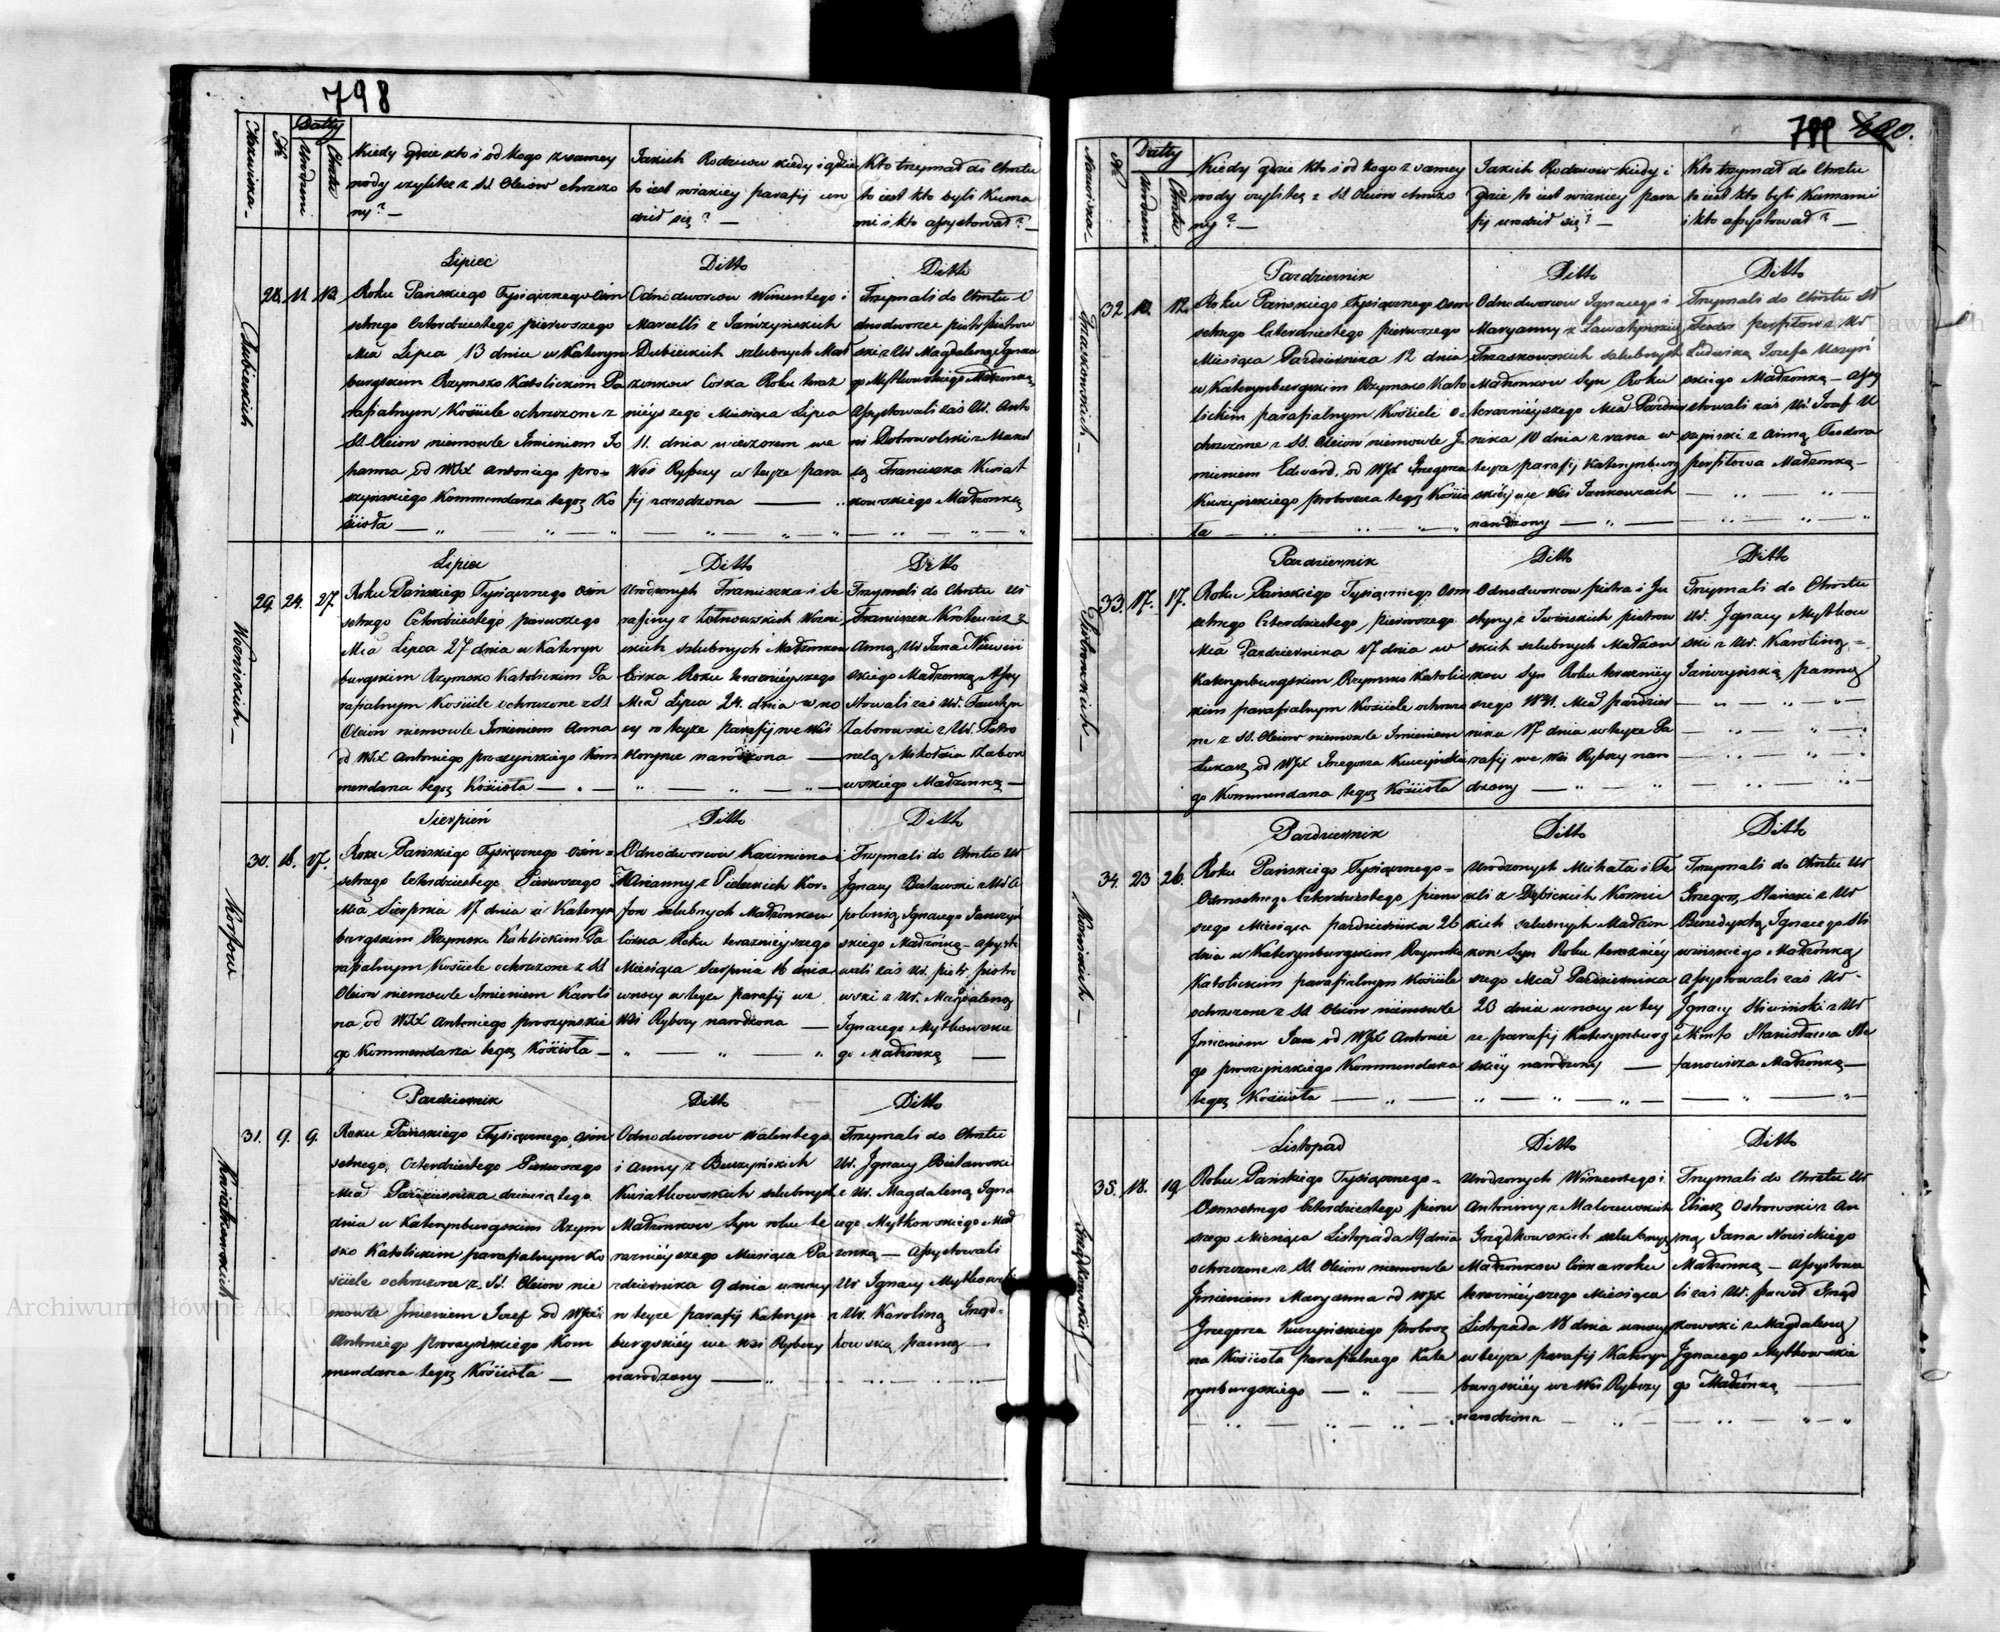 798
Nazwiska
№
Datty
Urodzeni
Chrztu
Kiedy gdzie kto i od kogo z samey
wody czyli też z SS. Oleiow chrzczo
ny? —
Jakich Rodziców kiedy i gdzie
to iest w iakiey parafij uro
dził się? —
Kto trzymał do Chrztu
to iest kto byli Kuma
mi i kto assystował? —
Lipiec
Ditto
Ditto
28. 11. 13.
Roku Pańskiego Tysiącznego Osm
setnego Czterdziestego pierwszego
Mca Lipca 13 dnia w Kateryn
burgskim Rzymsko Katolickim Pa
rafialnym Kościele ochrzczone z
SS. Oleiow niemowle Imieniem Jo
hanna, od WJX Antoniego pro=
szyńskiego Kommendarza tegoż Ko
ścioła
Odnodworcow Wincentego i
Marcelli z Jańczyńskich
Dubieckich szlubnych Mał
żonkow Córka Roku teraz
nieyszego Miesiąca Lipca
11. dnia wieczorem we
Wsi Rybczy w teyże para
fij narodzona
Trzymali do Chrztu O
dnodworzec piotr piotrow
ski z Ur. Magdaleną Ignac
go Mytkowskiego Małżonką
Assystowali zaś Ur. Anto
ni Dobrowolski z
Franciszka Kwiat
kowskiego Małżonką
Lipiec
Ditto
Ditto
Wocnickich
29. 24. 27.
Roku Pańskiego Tysiącznego Osm
setnego Czterdziestego pierwszego
Mca Lipca 27 dnia w Kateryn
burgskim Rzymsko Katolickim Pa
rafialnym Kościele ochrzczone z SS
Oleiow niemowle Imieniem Anna
od WJX Antoniego proszyńskiego Kom
mendarza tegoż Kościoła
Urodzonych Franciszka i Se
rafiny z
szlubnych Małżonkow
Córka Roku teraznieyszego
Mca Lipca 24. dnia w no
cy w teyże parafij we Wsi
narodzona
Trzymali do Chrztu Ur
Franciszek z
Anną Ur Jana
skiego Małżonką Assy
stowali zaś Ur.
Zaborowski z Ur. Petro
nelą Mikołaia Zaboro
wskiego Małżonką
Sierpień
Ditto
Ditto
Korfow
30. 16. 17.
Roku Pańskiego Tysiącznego Osm=
setnego Czterdziestego Pierwszego
Mca Sierpnia 17 dnia w Kateryn
burgskim Rzymsko Katolickim Pa
rafialnym Kościele ochrzczone z SS
Oleiow niemowle Imieniem Karoli
na, od WJX Antoniego proszyńskie
go Kommendarza tegoż Kościoła
Odnodworcow Kazimierza i
Marianny z Kor=
fow szlubnych Małżonkow
Córka Roku teraznieyszego
Miesiąca Sierpnia 16 dnia
w nocy w teyże parafij we
Wsi Rybczy narodzona
Trzymali do Chrztu Ur
Ignacy Bielawski z Ur A
polonią Ignacego Janczyń
skiego Małżonką — Assysto
wali zaś Ur. piotr piotro
wski z Ur. Magdaleną
Ignacego Mytkowskie
go Małżonką
Pazdziernik
Ditto
Ditto
Kwiatkowskich
31. 9. 9.
Roku Pańskiego Tysiącznego Osm
setnego, Czterdziestego Pierwszego
Mca Pazdziernika dziewiątego
dnia w Katerynburgskim Rzym
sko Katolickim parafialnym Ko
ściele ochrzczone z SS. Oleiow nie
mowle Imieniem Jozef od WJX
Antoniego Proszyńskiego Kom
mendarza tegoż Kościoła
Odnodworcow Walentego
i Anny z Buczyńskich
Kwiatkowskich szlubnych
Małżonkow Syn roku te
raznieyszego Miesiąca Pa
zdziernika 9 dnia w nocy
w teyże parafij Kateryn
burgskiéy we Wsi Rybczy
narodzony
Trzymali do Chrztu
Ur. Ignacy Bielawski
z Ur. Magdaleną Igna
cego Mytkowskiego Mał
żonką — Assystowali
Ur Ignacy Mytkowski
z Ur. Karoliną Grząd=
kowską panną
799
Nazwiska
№
Datty
Urodzeni
Chrztu
Kiedy gdzie kto i od kogo z samey
wody czyli też z SS. Oleiow chrzczo
ny? —
Jakich Rodziców kiedy i
gdzie to iest w iakiey para
fij urodził się? —
Kto trzymał do Chrztu
to iest kto byli Kumami
i kto assystował? —
Pazdziernik
Ditto
Ditto
Traskowskich
32. 10. 12.
Roku Pańskiego Tysiącznego Osm
setnego Czterdziestego pierwszego
Miesiąca Pazdziernika 12 dnia
w Katerynburgskim Rzymsko Kato
lickim parafialnym Kościele o=
chrzczone z SS. Oleiow niemowle J
mieniem Edward, od WJX Grzegorza
Kuczyńskiego proboszcza tegoż Kościo
ła
Odnodworcow Ignacego i
Maryanny z
Traskowskich szlubnych
Małżonkow Syn Roku
teraznieyszego Mca Pazdzier
nika 10 dnia z rana w
teyże parafij Katerynburg
skiéy we Wsi Jankowcach
narodzony
Trzymali do Chrztu Ur
Teodor perfiłow z Ur
Ludwiką Jozefa
skiego Małżonką — Assy
stowali zaś Ur Jozef
z Anną Teodora
perfiłowa Małżonką
Pazdziernik
Ditto
Ditto
Piotrowskich
33. 17. 17.
Roku Pańskiego Tysiącznego Osm
setnego Czterdziestego, pierwszego
Mca Pazdziernika 17 dnia w
Katerynburgskim Rzymsko Katolic
kim parafialnym Kościele ochrzczo
ne z SS. Oleiow niemowle Imieniem
Łukasz, od WJX Grzegorza Kuczyńskie
go Kommendarza tegoż Kościoła
Odnodworcow piotra i Ju
styny z piotrow
skich szlubnych Małżon
kow Syn Roku terazniéy
szego 1841. Mca pazdzier
nika 17 dnia w teyże Pa
rafij we Wsi Rybczy naro
dzony
Trzymali do Chrztu
Ur. Ignacy Mytkow
ski z Ur. Karoliną =
Janczyńską panną
Pazdziernik
Ditto
Ditto
34. 23 26.
Roku Pańskiego Tysiącznego=
Osmsetnego Czterdziestego pierw
szego Miesiąca pazdziernika 26
dnia w Katerynburgskim Rzymsko
Katolickim parafialnym Kościele
ochrzczone z SS. Oleiow niemowle
Imieniem Jan od WJX Antonie
go proszyńskiego Kommendarza
tegoż Kościoła
Urodzonych Michała i Te
kli z Dębickich
kich szlubnych Małżon
kow Syn Roku teraznićy
szego Mca Pazdziernika
23 dnia w nocy w tey
ze parafij Katerynburg
skiéy narodzony
Trzymali do Chrztu Ur
Grzegorz z Ur
Benedyktą Ignacego Sli
wińskiego Małżonką
Assystowali zaś Ur
Ignacy Sliwiński z Ur
Stanisława Ste
fanowicza Małżonką
Listopad
Ditto
Ditto
Grządkowskich
35. 18. 19
Roku Pańskiego Tysiącznego=
Osmsetnego Czterdziestego pierw
szego Miesiąca Listopada 19 dnia
ochrzczone z SS. Oleiow niemowle
Imieniem Maryanna od WJX
Grzegorza Kuczyńskiego probosz
na Kościoła parafialnego Kate
rynburgskiego
Urodzonych Wincentego i
Antoniny z Malczewskich
Grządkowskich szlubnych
Małżonkow Córka roku
teraznieyszego Miesiąca
Listopada 18 dnia w nocy
w teyże parafij Kateryn
burgskiéy we Wsi Rybczy
narodzona
Trzymali do Chrztu Ur
Eliasz Ostrowski z An
ną Jana Nowickiego
Małżonką — Assystowa
li zaś Ur. paweł Grząd
kowski z Magdaleną
Ignacego Mytkowskie
go Małżonką
Archiwum Główne Akt Dawnych